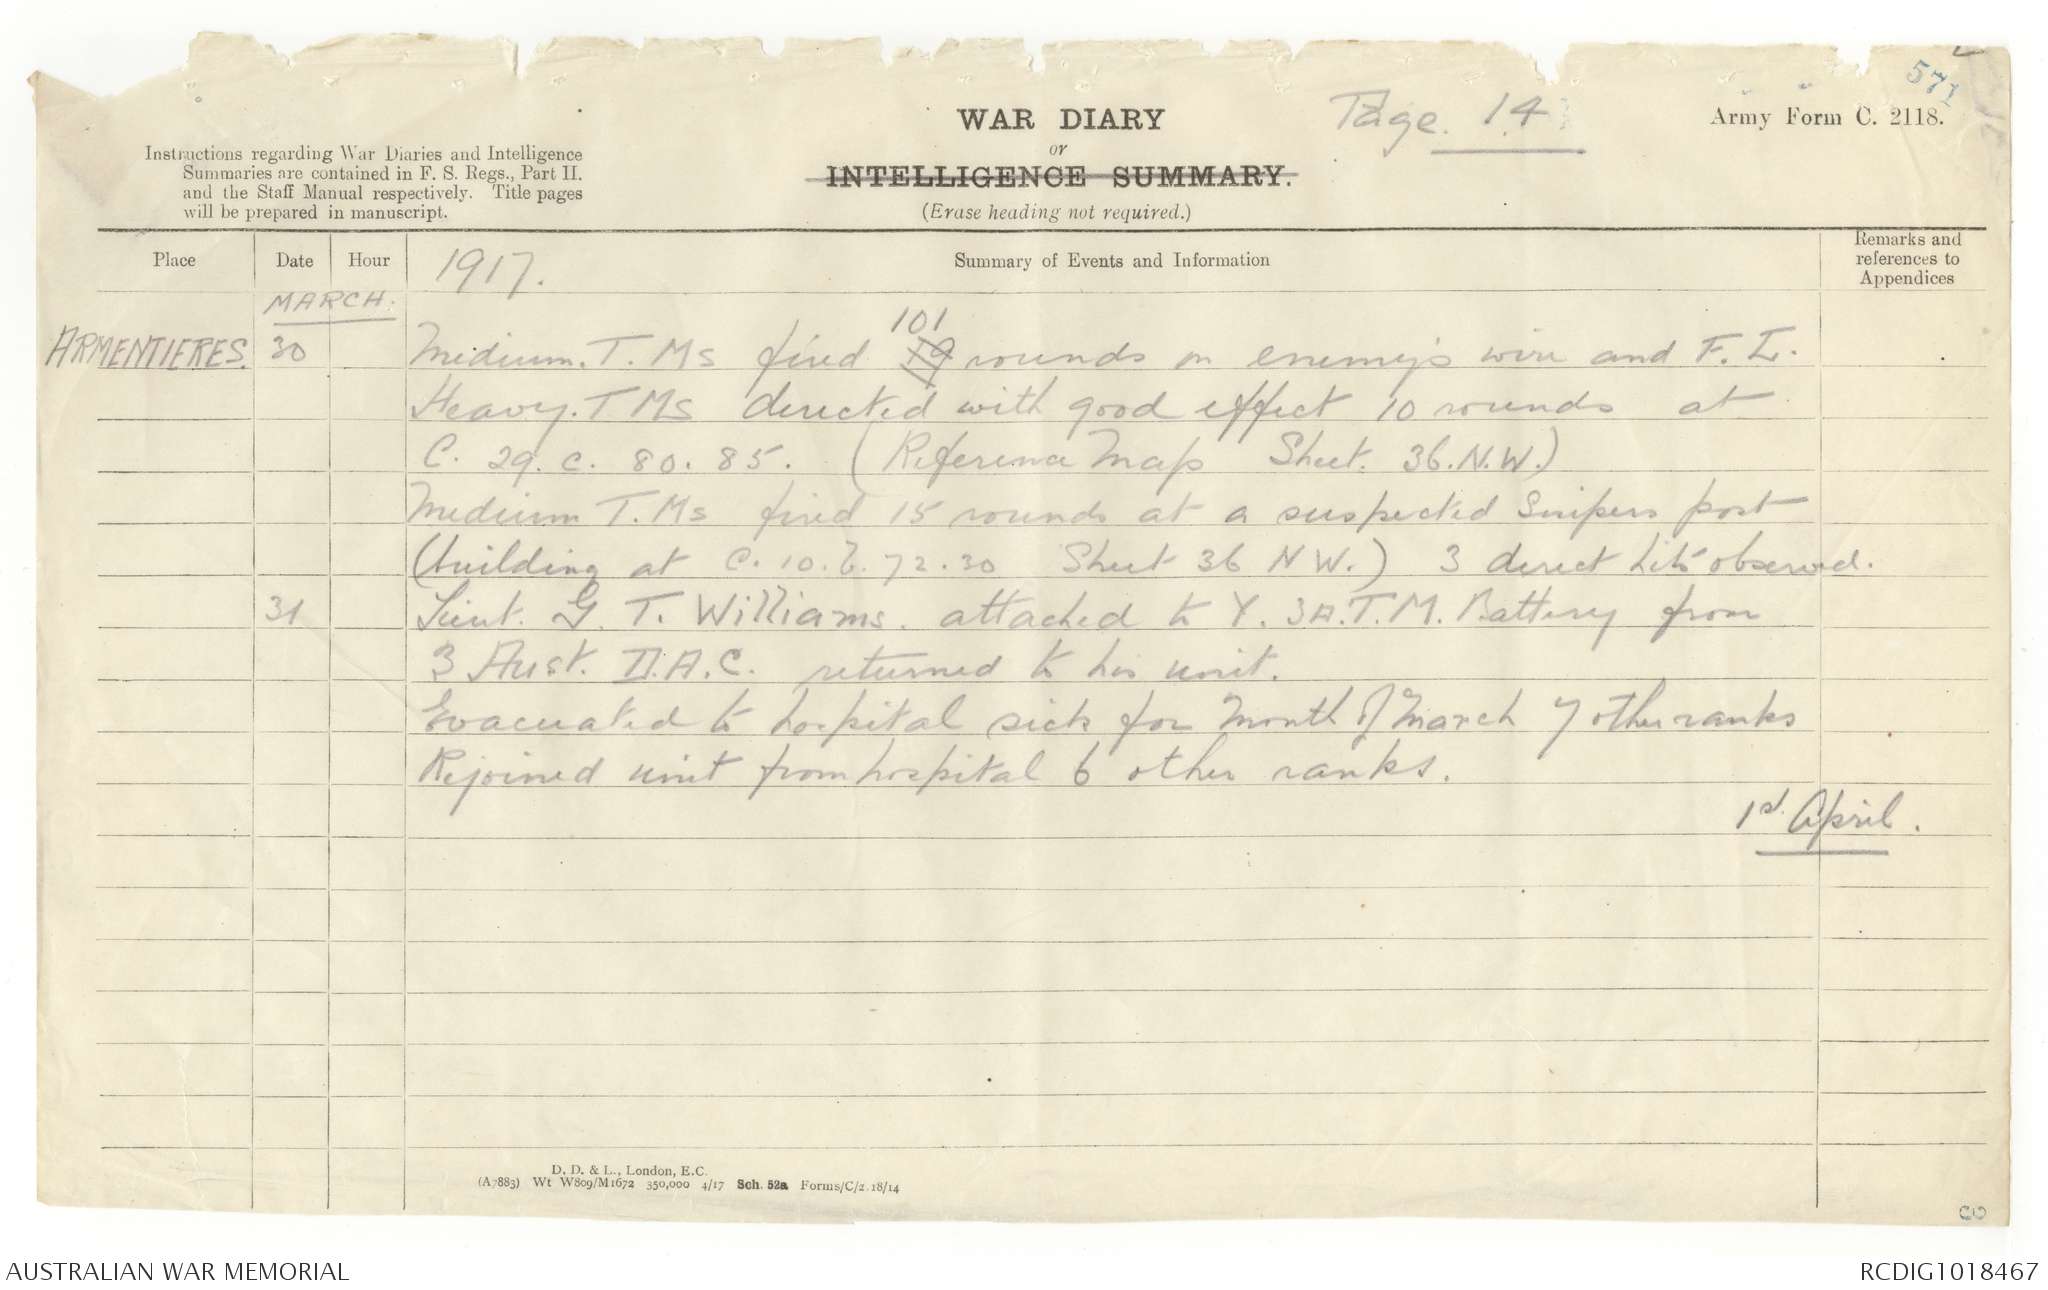 571
Page. 14
Army Form C. 2118.
WAR DIARY
or
INTELLIGENCE SUMMARY.
(Erase heading not required.)
Instructions regarding War Diaries and Intelligence
Summaries are contained in F. S. Regs., Part II.
and the Staff Manual respectively. Title pages
will be prepared in manuscript.
Place Date Hour 1917. Summary of Events and Information
Remarks and
references to
Appendices
MARCH.
101
ARMENTIERES. 30 Medium. T. Ms fired 19 rounds on enemy's wire and F. L.
Heavy. T Ms directed with good effect 10 rounds at
C. 29. c. 80. 85. (Reference Map Sheet. 36. N.W.)
Medium T. Ms fired 15 rounds at a suspected Snipers post
(building at C. 10. b. 72. 30 Sheet 36 N W.) 3 direct hits observed.
31 Lieut. G. T. Williams. attached to Y. 3A. T. M. Battery from
3 Aust. D.A.C. returned to his unit.
Evacuated to hospital sick for Month of March 7 other ranks
Rejoined unit from hospital 6 other ranks.
1st April.
D. D. & L., London, E.C.
(A7883) Wt W809/M1672 350,000 4/17 Sch. 52a Forms/C/2118/14
AUSTRALIAN WAR MEMORIAL
RCDIG1018467